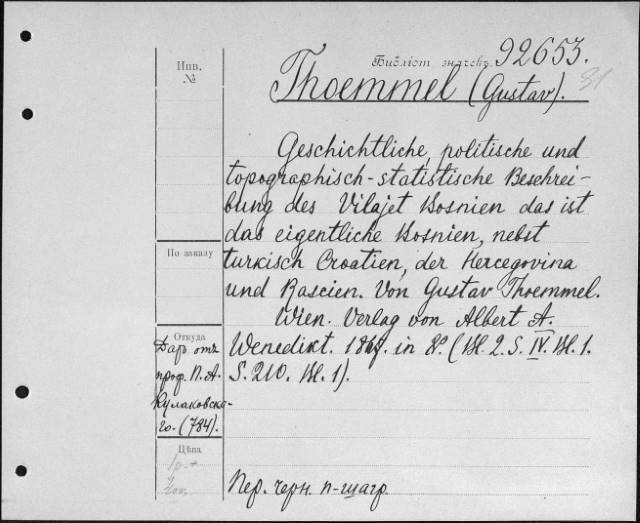 Библіот. значекъ. 92653.
Инв.
№
Thoemmel (Gustav).
31
Geschichtliche, politische und
topographisch-statistische Beschrei-
bung des Vilajet Bosnien das ist
das eigentliche Bosnien, nebst
turkisch Croatien, der Hercegovina
und Rascien. Von Gustav Thoemmel.
Wien. Verlag von Albert A.
Wenedikt. 1867. in 8º. (Bl. 2. S. IV. Bl. 1.
S. 210. Bl. 1).
По заказу
Откуда
Даръ отъ
проф. П. А.
Кулаковска-
го. (784).
Цѣна
1р.
Пер. черн. п-шагр.